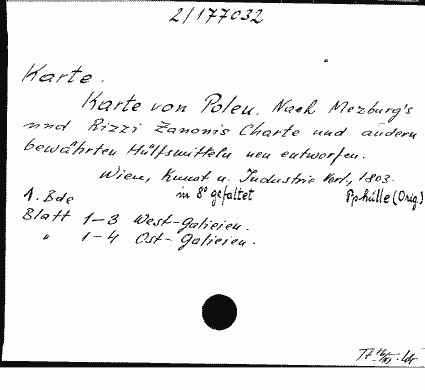 2/177032
Karte.
Karte von Polen. Nach Mezburg's
und Rizzi Zanonis Charte und andern
bewährten Hülfsmitteln neu entworfen.
Wien, Kunst u. Industrie Verl., 1803.
1. Bde in 8° gefaltet Pphülle (Orig.)
Blatt 1-3 West-Galizien.
" 1-4 Ost-Galizien.